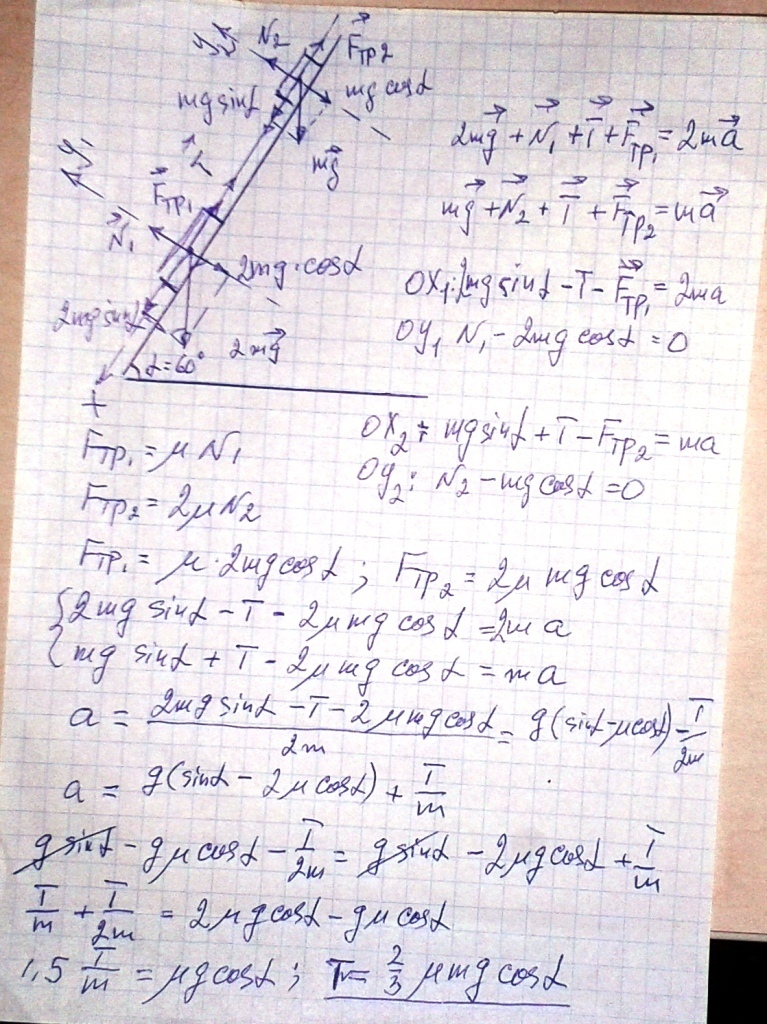 y₂ N₂ F⃗тр2
mg sinα mg cosα
T⃗ mg⃗
y₁ F⃗тр₁
N⃗₁ 2mg·cosα
2mg sinα 2mg⃗
α=60°
2mg⃗ + N⃗₁ + T⃗ + F⃗тр₁ = 2ma⃗
mg⃗ + N⃗₂ + T⃗ + F⃗тр₂ = ma⃗
OX₁: 2mg sinα - T - F⃗тр₁ = 2ma
OY₁ N₁ - 2mg cosα = 0
OX₂: mg sinα + T - Fтр₂ = ma
OY₂: N₂ - mg cosα = 0
Fтр₁ = μN₁
Fтр₂ = 2μN₂
Fтр₁ = μ·2mg cosα; Fтр₂ = 2μ mg cosα
{2mg sinα - T - 2μmg cosα = 2ma
{mg sinα + T - 2μmg cosα = ma
a = (2mg sinα - T - 2μmg cosα)/2m = g(sinα - μcosα) - T/2m
a = g(sinα - 2μcosα) + T/m
g sinα - gμcosα - T/2m = g sinα - 2μg cosα + T/m
T/m + T/2m = 2μg cosα - gμ cosα
1,5 T/m = μg cosα; T = 2/3 μmg cosα